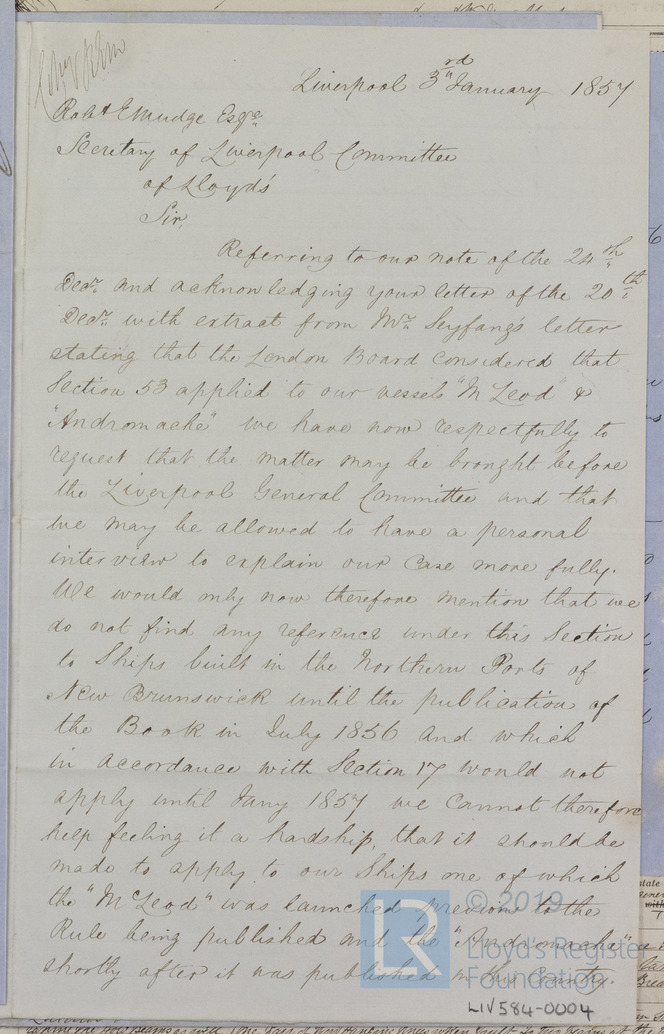 Liverpool 3rd January 1857
Robt E Mudge Esqre
Secretary of Liverpool Committee
of Lloyd's
Sir,
Referring to our note of the 24th
Decr. and acknowledging your letter of the 20th
Decr. with extract from Mr Seyfang's letter
stating that the London Board considered that
Section 53 applied to our vessels "McLeod" &
"Andromache" we have now respectfully to
request that the matter may be brought before
the Liverpool General Committee and that
we may be allowed to have a personal
interview to explain our case more fully.
We would only now therefore mention that we
do not find any reference under this Section
to Ships built in the Northern Ports of
New Brunswick until the publication of
the Book in July 1856 and which
in accordance with Section 17 would not
apply until Jany 1857 we cannot therefore
help feeling it a hardship, that it should be
made to apply to our Ships one of which
the "McLeod" was launched previous to the
Rule being published and the "Andromache"
shortly after it was published in this Country.
© 2019
Lloyd's Register
Foundation
LR
LIV584-0004